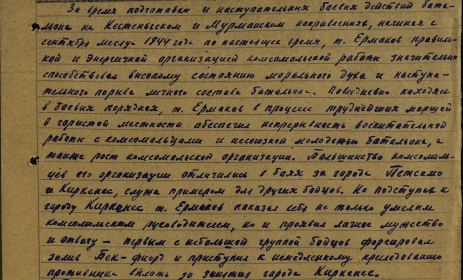 За время подготовки и наступательных боевых действий бата-
льона на Кестеньгском и Мурманском направлениях, начиная с
сентября месяца 1944 года по настоящее время, т. Ермаков правиль-
ной и энергичной организацией комсомольской работы значительно
способствовал высокому состоянию морального духа и наступа-
тельного порыва личного состава батальона. Повседневно находясь
в боевых порядках, т. Ермаков в процессе труднейших маршей
в гористой местности обеспечил непрерывность воспитательной
работы с комсомольцами и несоюзной молодежью батальона, а
также рост комсомольской организации. Большинство комсомоль-
цев его организации отличились в боях за города Петсамо
и Киркенес, служа примером для других бойцов. На подступах к
городу Киркенес т. Ермаков показал себя не только умелым
комсомольским руководителем, но и проявил личное мужество
и отвагу - первым с небольшой группой бойцов форсировал
залив Бек-фиорд и приступил к немедленному преследованию
противника вплоть до занятия города Киркенес.